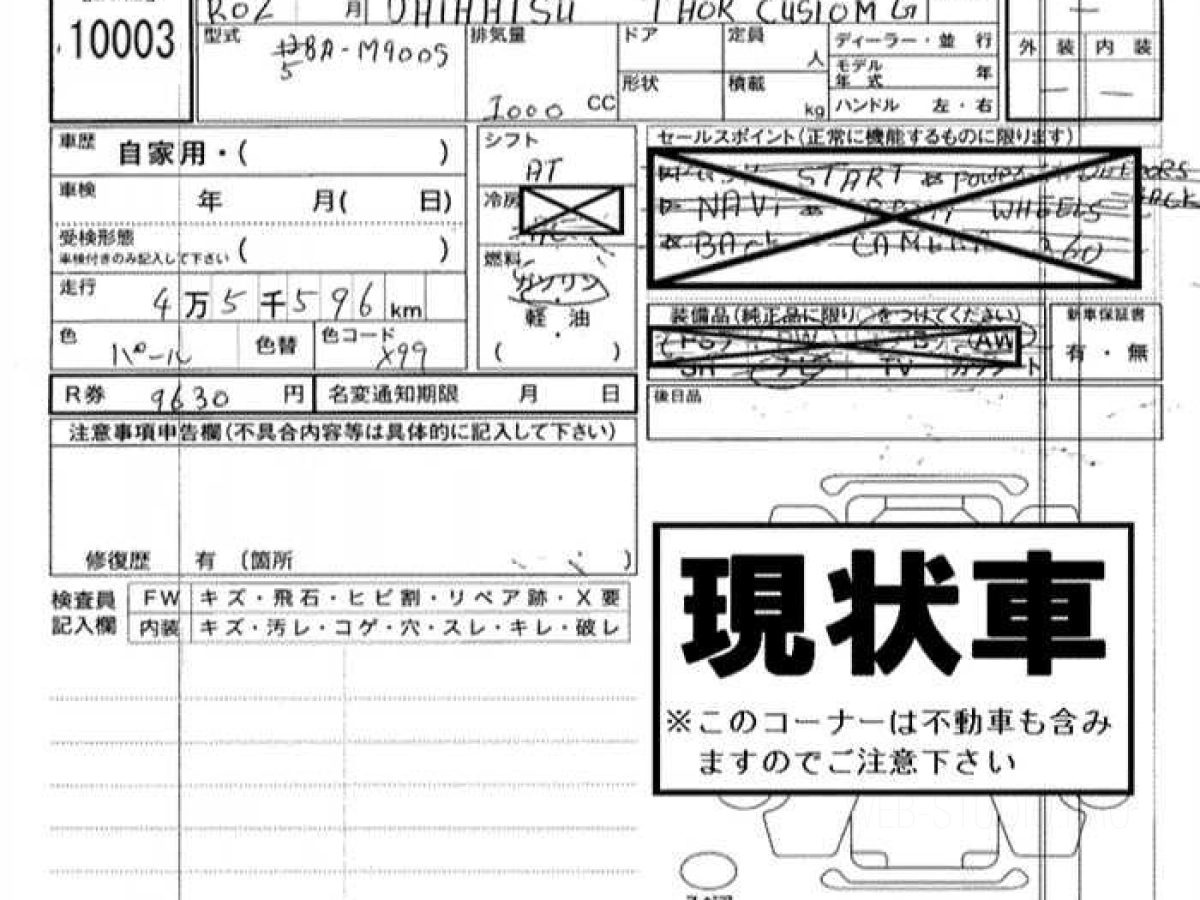 10003
R02 月 DAIHATSU THOR CUSTOM G
型式 5BA-M900S
排気量 1000 CC
ドア
定員 人
形状
積載 kg
ディーラー・並 行
モデル年式 年
ハンドル 左・右
外 装 内 装
車歴 自家用・( )
車検 年 月( 日)
受検形態
車検付きのみ記入して下さい ( )
走行 4万5千596km
色 パール
色替
色コード X99
シフト AT
冷房 AC
燃料 ガソリン
・
軽 油
・
( )
セールスポイント(正常に機能するものに限ります)
START POWER
NAVi WHEELS
BACK CAMERA 360
装備品(純正品に限り○をつけてください)
AW
SR ナビ TV
新車保証書
有・無
R券 9630 円
名変通知期限 月 日
後日品
注意事項申告欄(不具合内容等は具体的に記入して下さい)
修復歴 有 (箇所 )
検査員記入欄
FW キズ・飛石・ヒビ割・リペア跡・X要
内装 キズ・汚レ・コゲ・穴・スレ・キレ・破レ
現状車
※このコーナーは不動車も含み
ますのでご注意下さい